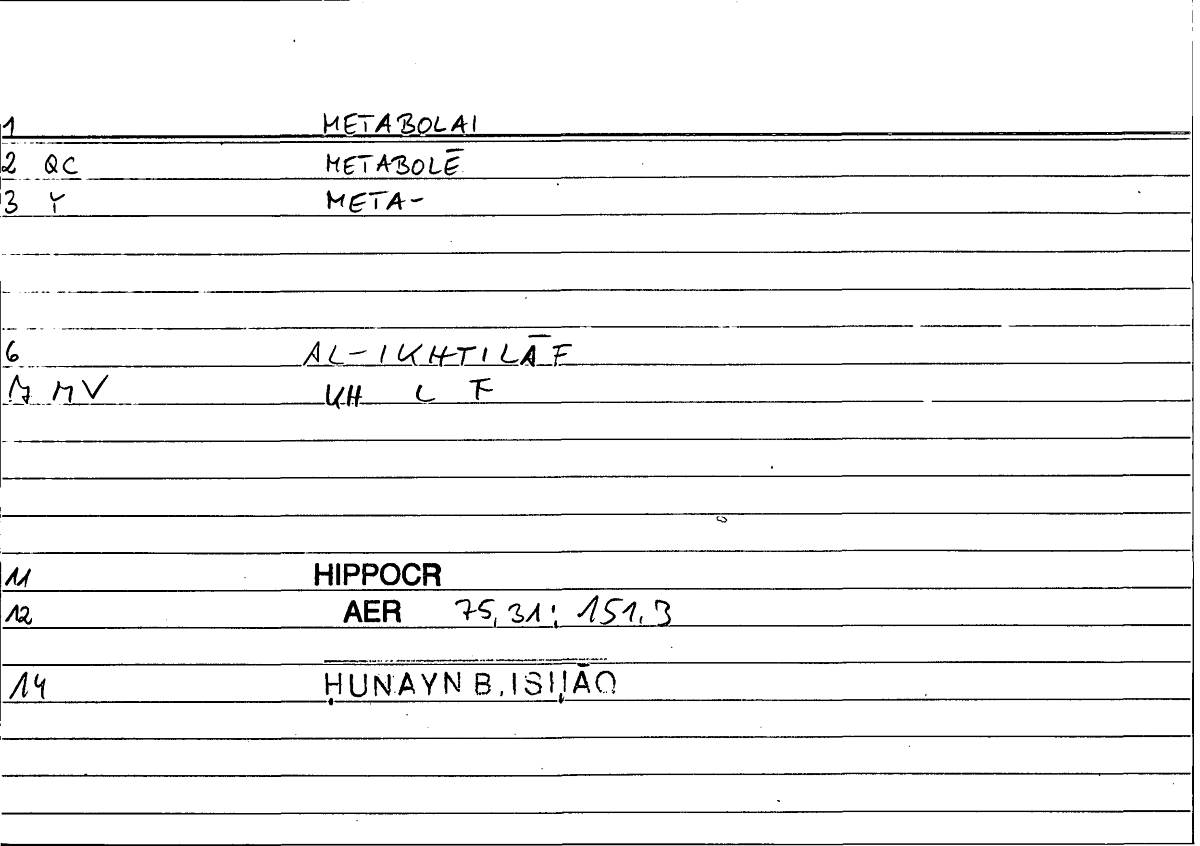 1 METABOLAI
2 QC METABOLĒ
3 Y META-
6 AL-IKHTILĀF
7 MV KH L F
11 HIPPOCR
12 AER 75,31; 151,3
14 ḤUNAYN B. ISḤĀQ